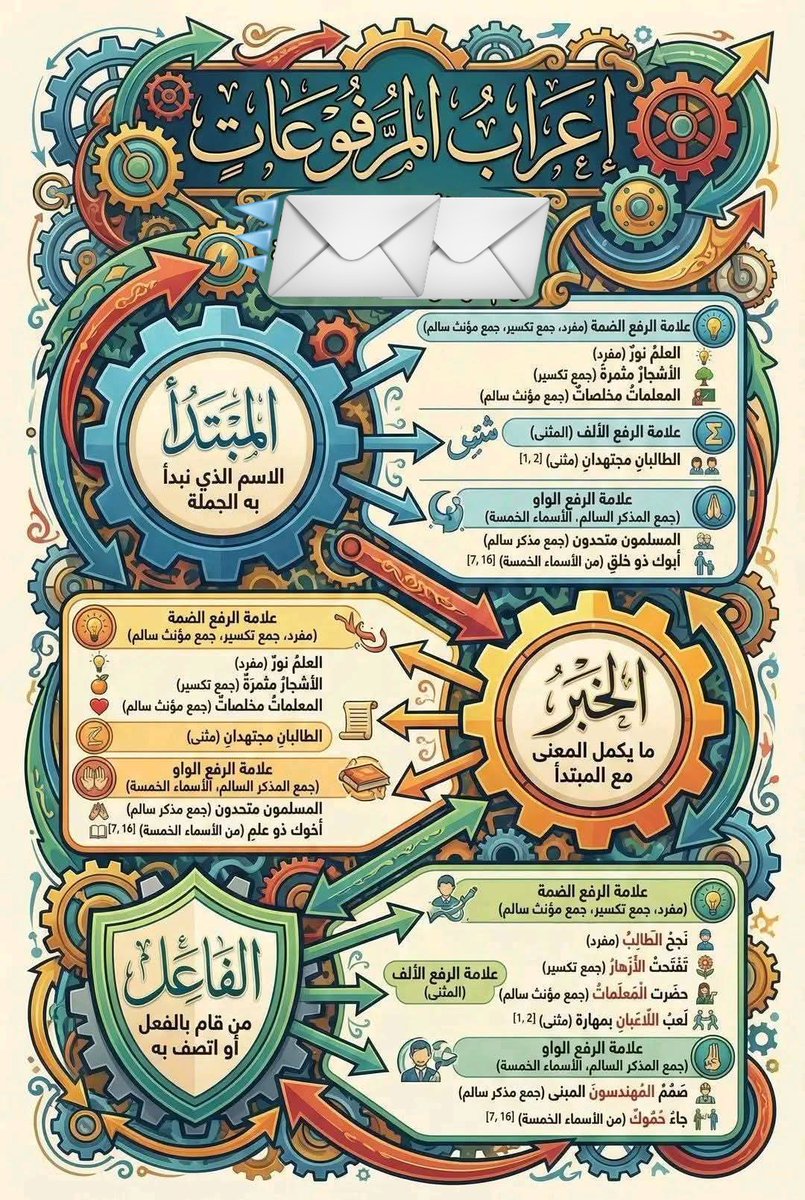 إعرَابُ المَرفُوعَاتٍ
المُبتَدَأُ
الاسم الذي نبدأ
به الجملة
علامة الرفع الضمة (مفرد، جمع تكسير، جمع مؤنث سالم)
العلمُ نورٌ (مفرد)
الأشجارُ مثمرةٌ (جمع تكسير)
المعلماتُ مخلصاتٌ (جمع مؤنث سالم)
علامة الرفع الألف (المثنى)
الطالبانِ مجتهدانِ (مثنى) [1, 2]
علامة الرفع الواو
(جمع المذكر السالم، الأسماء الخمسة)
المسلمون متحدون (جمع مذكر سالم)
أبوك ذو خلقٍ (من الأسماء الخمسة) [7, 16]
الخَبَرُ
ما يكمل المعنى
مع المبتدأ
علامة الرفع الضمة
(مفرد، جمع تكسير، جمع مؤنث سالم)
العلمُ نورٌ (مفرد)
الأشجارُ مثمرةٌ (جمع تكسير)
المعلماتُ مخلصاتٌ (جمع مؤنث سالم)
الطالبانِ مجتهدانِ (مثنى)
علامة الرفع الواو
(جمع المذكر السالم، الأسماء الخمسة)
المسلمون متحدون (جمع مذكر سالم)
أخوك ذو علمٍ (من الأسماء الخمسة) [7, 16]
الفَاعَل
من قام بالفعل
أو اتصف به
علامة الرفع الضمة
(مفرد، جمع تكسير، جمع مؤنث سالم)
نَجحَ الطَالِبُ (مفرد)
تَفْتَحتْ الأَزهارُ (جمع تكسير)
علامة الرفع الألف
(المثنى)
حضَرت الْمَعلَماتُ (جمع مؤنث سالم)
لَعبَ اللّاعَبانِ بمهارة (مثنى) [1, 2]
علامة الرفع الواو
(جمع المذكر السالم، الأسماء الخمسة)
صَمّمُ المُهندسونَ المبنى (جمع مذكر سالم)
جاءُ حَمُوكّ (من الأسماء الخمسة) [7, 16]